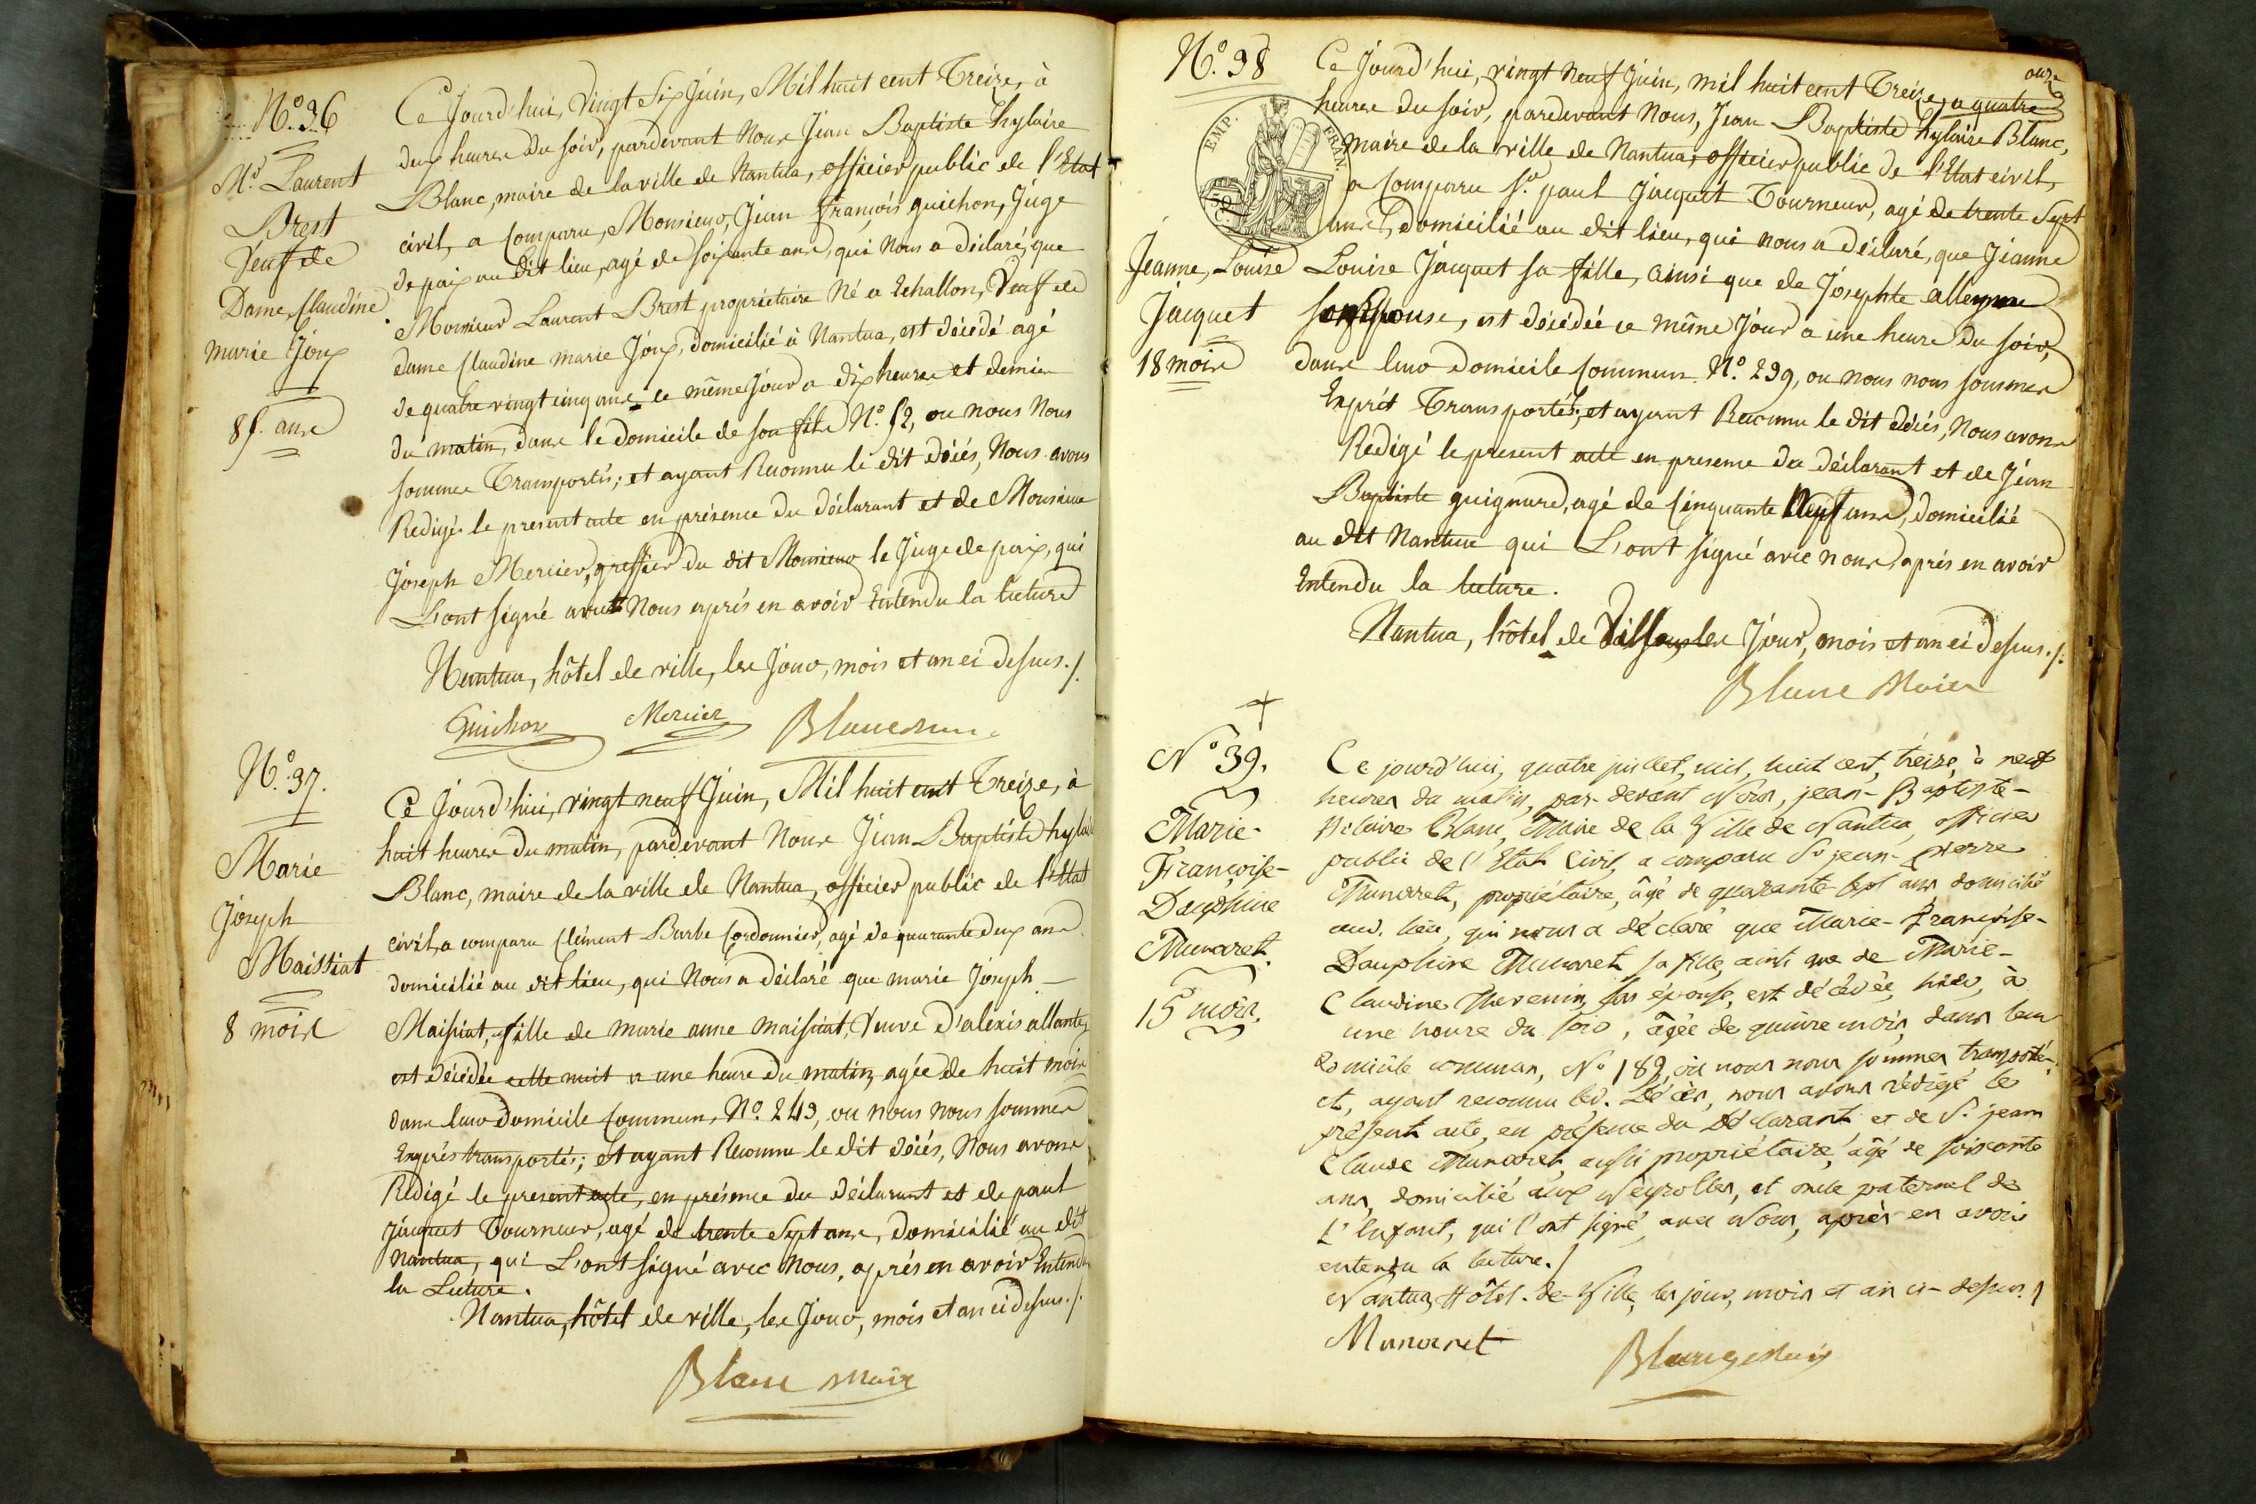 N.º 36
M.r Laurent
Brest
Veuf de
Dame Claudine
marie Joux
85. ans
Ce Jourd'hui, Vingt Six Juin, Mil huit cent Treize, à
deux heures du soir, pardevant Nous Jean Baptiste hylaire
Blanc, maire de la ville de Nantua, officier public de l'Etat
civil, a Comparu, Monsieur, Jean françois guichon, Juge
de paix au dit lieu, agé de soixante ans, qui Nous a déclaré, que
Monsieur Laurent Brest propriétaire Né a Echallon, Veuf de
dame Claudine marie Joux, domicilié à Nantua, est décédé agé
de quatre vingt cinq ans, ce même Jour a dix heures et demie
du matin, dans le domicile de son fils N.º 52, ou nous Nous
sommes Transportés; et ayant Reconnu le dit décés, Nous avons
Redigé le present acte en présence du déclarant et de Monsieur
Joseph Mercier, greffier du dit Monsieur le Juge de paix, qui
L'ont signé avec Nous aprés en avoir Entendu la lecture
Nantua, hôtel de ville, les Jour, mois et an ci dessus ./.
Guichon Mercier Blanc maire
N.º 37.
Marie
Joseph
Maissiat
8 mois
Ce Jourd'hui, vingt neuf Juin, Mil huit cent Treize, à
huit heures du matin, pardevant Nous Jean Baptiste hylaire
Blanc, maire de la ville de Nantua, officier public de l'Etat
civil, a comparu Clément Barbe Cordonnier, agé de quarante deux ans
domicilié au dit lieu, qui Nous a déclaré que marie Joseph —
Maissiat, fille de marie anne maissiat, Veuve d'alexis allante,
est décédée cette nuit a une heure du matin, agée de huit mois
dans leur domicile Commun, N.º 243, ou nous nous sommes
Exprés transportés; et ayant Reconnu le dit décés, Nous avons
Redigé le present acte, en présence du déclarant et de paul
Jacquet Tourneur, agé de trente Sept ans, domicilié au dit
Nantua, qui L'ont signé avec Nous, aprés en avoir Entendu
la Lecture.
Nantua, hôtel de ville, les Jour, mois et an ci dessus ./.
Blanc maire
N.º 38
EMP. FRAN.
Jeanne, Louise
Jacquet
18 mois
onze
Ce Jourd'hui, vingt Neuf Juin, mil huit cent Treize, a quatre
heures du soir, pardevant Nous, Jean Baptiste hylaire Blanc,
maire de la ville de Nantua, officier public de l'Etat civil,
a Comparu S.r paul Jacquet Tourneur, agé de trente Sept
ans, domicilié au dit lieu, qui nous a déclaré, que Jeanne
Louise Jacquet sa fille, ainsi que de Josephte
son Epouse, est décédée ce même Jour a une heure du soir,
dans leur domicile Commun N.º 239, ou nous nous sommes
Exprés Transportés; et ayant Reconnu le dit décés, Nous avons
Redigé le present acte en presence du déclarant et de Jean
Baptiste guignard, agé de Cinquante Neuf ans, domicilié
au dit Nantua qui L'ont signé avec nous aprés en avoir
Entendu la lecture.
Nantua, hôtel de Ville, les Jour, mois et an ci dessus ./.
Blanc Maire
N.º 39.
Marie-
Françoise-
Dauphine
Munaret.
15 mois.
Ce jourd'hui, quatre juillet, mil, huit cent, treize, à neuf
heures du matin, par-devant Nous, jean-Baptiste-
hilaire Blanc, Maire de la Ville de Nantua, officier
public de l'Etat Civil, a comparu S.r jean-pierre
Munaret, propriétaire, âgé de quarante-sept ans domicilié
aud. lieu, qui nous a déclaré que Marie-Françoise-
Dauphine Munaret, sa fille, ainsi que de Marie-
Claudine Thevenin, son épouse, est décédée, hier, à
une heure du soir, âgée de quinze mois, dans leur
domicile commun, N.º 189, où nous nous sommes transportés
et, ayant reconnu led. Décès, nous avons rédigé le
présent acte, en présence du Déclarant et de S.r jean
Claude Munaret, aussi propriétaire, âgé de soixante
ans, domicilié aux Neyrolles, et oncle paternel de
l'Enfant, qui l'ont signé, avec Nous, après en avoir
entendu la lecture. /
Nantua, Hôtel-de-Ville, les jour, mois et an ci-dessus. /
Munaret Blanc Maire